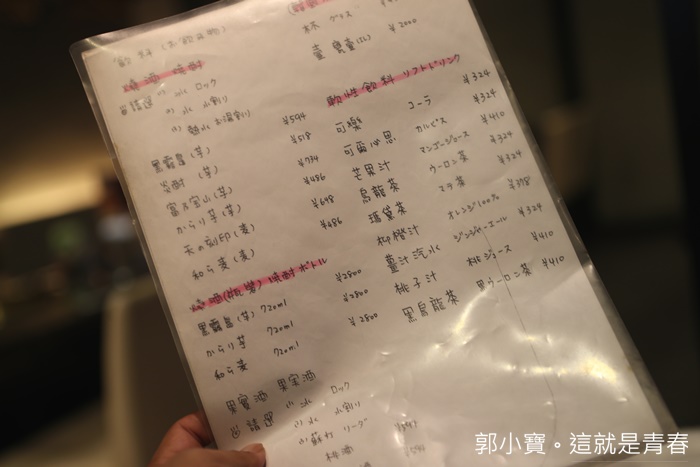 飲料
燒酒 焼酎
請選 (1) 冰 ロック
(2) 水 水割り
(3) 熱水 お湯割り
黑霧島 (芋) ¥594
(芋) ¥518
富乃宝山 (芋) ¥734
からり芋 (芋) ¥486
天の刻印 (麦) ¥648
和ら麦 (麦) ¥486
燒酒 (瓶裝) 焼酎ボトル
黑霧島 (芋) 720ml ¥2800
からり芋 720ml ¥2800
和ら麦 720ml ¥2800
果實酒 果実酒
請選 (1) 冰 ロック
(2) 水 水割り
(3) 蘇打 ソーダ
杯 グラス
壺 ¥2000
軟性飲料 ソフトドリンク
可樂 コーラ ¥324
可爾必思 カルピス ¥324
芒果汁 マンゴージュース ¥410
烏龍茶 ウーロン茶 ¥324
瑪黛茶 マテ茶 ¥324
柳橙汁 オレンジ100% ¥378
薑汁汽水 ジンジャーエール ¥324
桃子汁 桃ジュース ¥410
黑烏龍茶 黒ウーロン茶 ¥410
郭小寶。這就是青春